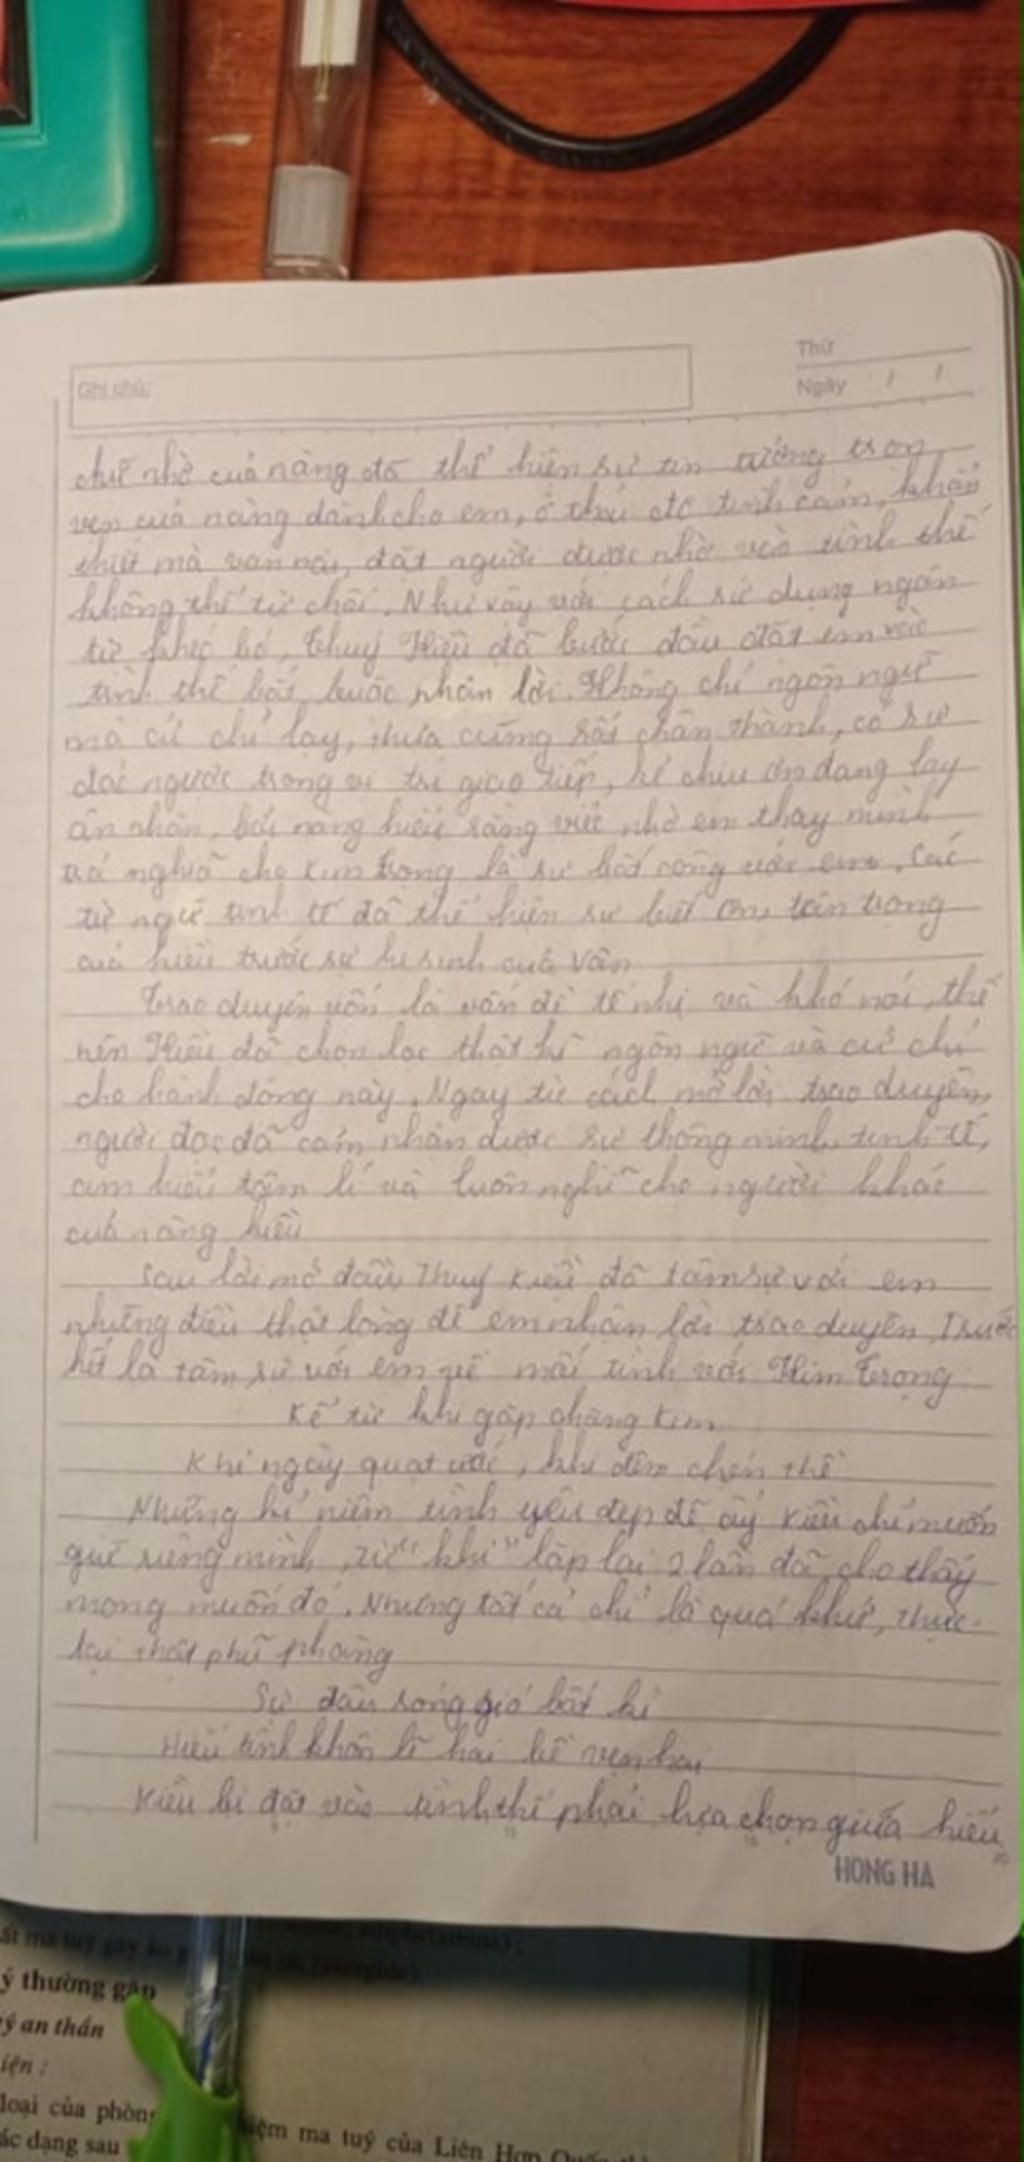 Ghi chú:
Thứ
Ngày / /
chữ nhờ của nàng đã thể hiện sự tin tưởng trọn
vẹn của nàng dành cho em, ở thái độ tình cảm, khẩn
thiết mà van nài, đặt người được nhờ vào tình thế
không thể từ chối. Như vậy với cách sử dụng ngôn
từ khéo bó, Thuý Kiều đã bước đầu đặt em vào
tình thế bắt buộc nhận lời. Không chỉ ngôn ngữ
mà cử chỉ lạy, thưa cũng rất chân thành, có sự
đảo ngược trong vị trí giao tiếp, kẻ chịu ơn đang lạy
ân nhân, bởi nàng hiểu rằng việc nhờ em thay mình
trả nghĩa cho Kim Trọng là sự bất công với em. Các
từ ngữ tinh tế đã thể hiện sự biết ơn, trân trọng
của kiều trước sự hi sinh của Vân
Trao duyên vốn là vấn đề tế nhị và khó nói, thế
nên Kiều đã chọn lọc thật kĩ ngôn ngữ và cử chỉ
cho hành động này. Ngay từ cách mở lời trao duyên,
người đọc đã cảm nhận được sự thông minh, tinh tế,
am hiểu tâm lí và luôn nghĩ cho người khác
của nàng kiều
Sau lời mở đầu, Thuý Kiều đã tâm sự với em
những điều thật lòng để em nhận lời trao duyên, Trước
hết là tâm sự với em về mối tình với Kim Trọng
Kể từ khi gặp chàng Kim
Khi ngày quạt ước, khi đêm chén thề
Những kỉ niệm tình yêu đẹp đẽ ấy Kiều chỉ muốn
giữ riêng mình, từ "khi" lặp lại 2 lần đã cho thấy
mong muốn đó. Nhưng tất cả chỉ là quá khứ, thực
tại thật phũ phàng
Sự đâu sóng gió bất kì
Hiếu tình khôn lẽ hai bề vẹn hai
Kiều bị đặt vào tình thế phải lựa chọn giữa hiếu
HONG HA
ất ma tuý gây ảo
ý thường gặp
ý an thần
iện :
loại của phòng iệm ma tuý của Liên Hợp Quốc
ác dạng sau